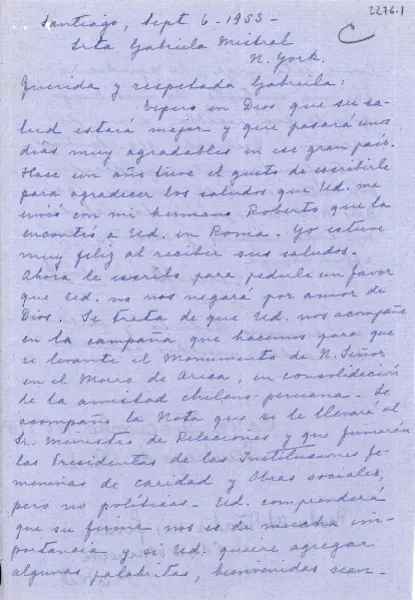 2276.1
C
Santiago, Sept 6-1953-
Srta Gabriela Mistral
N. York.
Querida y respetada Gabriela:
Espero en Dios que su sa-
lud estará mejor y que pasará unos
dias muy agradables en ese gran país.
Hase un año tuve el gusto de escribirle
para agradecer los saludos que Ud. me
envió con mi hermano Roberto que la
encontró a Ud. en Roma. Yo estuve
muy feliz al recibir sus saludos.
Ahora le escribo para pedirle un favor
que Ud. no nos negará por amor de
Dios. Se trata de que Ud. nos acompañe
en la campaña que hacemos para que
se levante el Monumento de N. Señor
en el Morro de Arica, en consolidación
de la amistad chileno-peruana. Le
acompaño la Nota que se le llevará al
Sr. Ministro de Relaciones y que firmarán
las Presidentas de las Instituciones fe-
meninas de caridad y Obras sociales,
pero no políticas. Ud. comprenderá
que su firma nos es de mucha im-
portancia y si Ud. quiere agregar
algunas palabritas, bienvenidas sean-